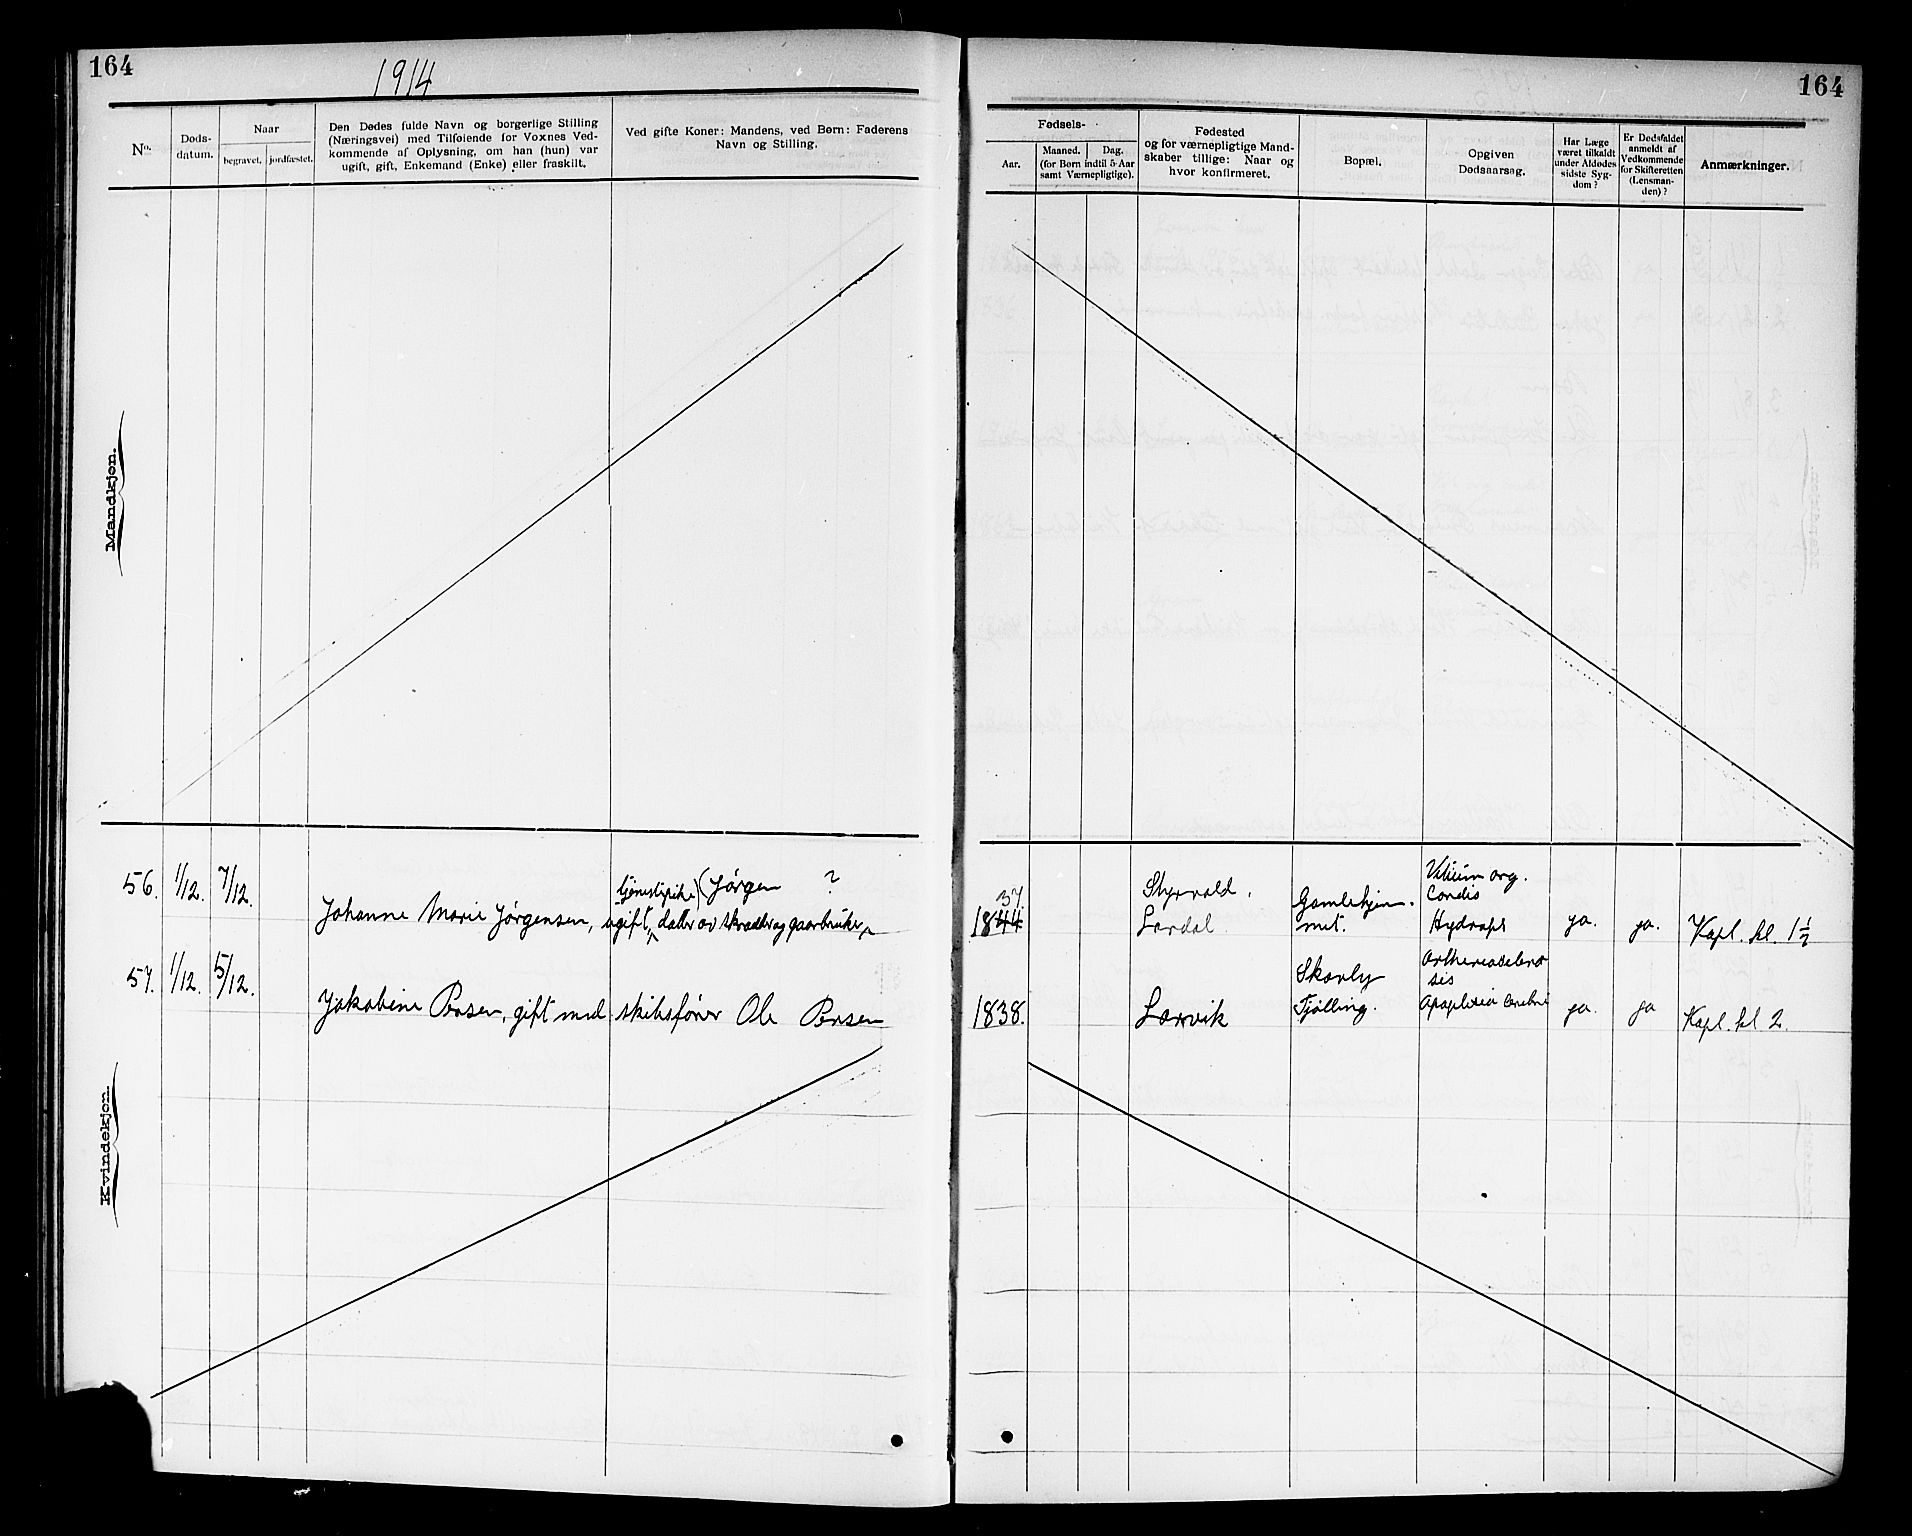 164
1914
No.
Døds-
datum.
Naar
begravet. jordfæstet.
Den Dødes fulde Navn og borgerlige Stilling
(Næringsvei) med Tilføiende for Voxnes Ved-
kommende af Oplysning, om han (hun) var
ugift, gift, Enkemand (Enke) eller fraskilt.
Ved gifte Koner: Mandens, ved Børn: Faderens
Navn og Stilling.
Mandkjøn.
56. 1/12. 7/12.
tjenestepike) (Jørgen ?
Johanne Marie Jørgensen, ugift, datter av skrædder og gaarbruker
57. 1/12. 5/12.
Jakobine Persen, gift med skibsfører Ole Persen
Kvindekjøn.
164
Fødsels-
Aar.
Maaned. Dag.
(for Børn indtil 5 Aar
samt Værnepligtige).
Fødested
og for værnepligtige Mand-
skaber tillige: Naar og
hvor konfirmeret.
Bopæl.
Opgiven
Dødsaarsag.
Har Læge
været tilkaldt
under Afdødes
sidste Syg-
dom?
Er Dødsfaldet
anmeldt af
Vedkommende
for Skifteretten
(Lensman-
den)?
Anmærkninger.
37.
1844
Styrvold.
Lardal
Gamlehjem-
met.
Vitium org.
Cordis
Hydrops
ja. ja. Kapl. kl. 1 1/2
1838.
Larvik
Skarly
Tjølling.
Artherioscleros
sis
Apoplexia cerebri
ja. ja Kapl. kl 2.